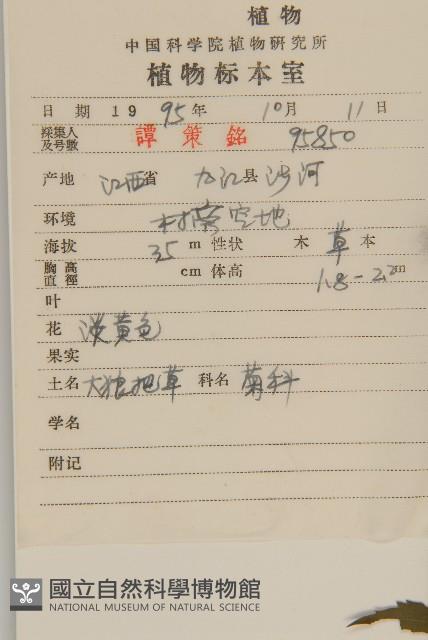 植物
中国科学院植物研究所
植物标本室
日 期 1995年 10月 11日
採集人及号數 譚策銘 95850
产地 江西省 九江县 沙河
环境 村旁空地
海拔 35 m 性状 木 草 本
胸高直徑 cm 体高 1.8-2.2m
叶
花 淡黄色
果实
土名 大狼把草 科名 菊科
学名
附记
國立自然科學博物館
NATIONAL MUSEUM OF NATURAL SCIENCE